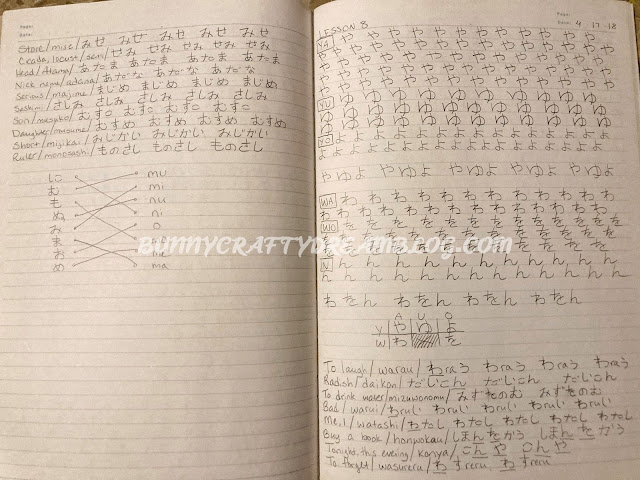 Store/mise/みせ みせ みせ みせ みせ
Cicada, locust/semi/せみ せみ せみ せみ せみ
Head/Atama/あたま あたま あたま あたま
Nick name/adana/あだな あだな あだな
Serious/majime/まじめ まじめ まじめ まじめ
Sashimi/さしみ さしみ さしみ さしみ
Son/musuko/むすこ むすこ むすこ むすこ
Daughter/musume/むすめ むすめ むすめ むすめ
Short/mijikai/みじかい みじかい みじかい
Ruler/monosashi/ものさし ものさし ものさし
に mu
む mi
も nu
ぬ ni
み o
ま
お me
め ma
BUNNYCRAFTYDREAMBLOG.COM
Page:
Date:
Page:
LESSON 8 Date: 4 17-18
YA や や や や や や や や
や や や や や や や や や
や や や や や や や や や
や や や や や や や や や
YU ゆ ゆ ゆ ゆ ゆ ゆ ゆ ゆ
ゆ ゆ ゆ ゆ ゆ ゆ ゆ ゆ ゆ
ゆ ゆ ゆ ゆ ゆ ゆ ゆ ゆ ゆ
YO よ よ よ よ よ よ よ よ よ よ
よ よ よ よ よ よ よ よ よ よ よ
やゆよ やゆよ やゆよ やゆよ
WA わ わ わ わ わ わ わ わ
わ わ わ わ わ わ わ わ わ
WO を を を を を を を を
を を を を を を を を を
N ん ん ん ん ん ん ん ん
ん ん ん ん ん ん ん ん ん
わをん わをん わをん わをん
A U O
Y や ゆ よ
W わ を
To laugh/warau/わraう わraう わraう わraう
Radish/daikon/だいこん だいこん だいこん
To drink water/mizuwonomu/みずをのむ みずをのむ
Bad/warui/わruい わruい わruい わruい わruい
Me, I/watashi/わたし わたし わたし わたし わたし
Buy a book/honwokau/ほんをかう ほんをかう
Tonight, this evening/konya/こんや こんや
To forget/wasureru/わすreru わすreru